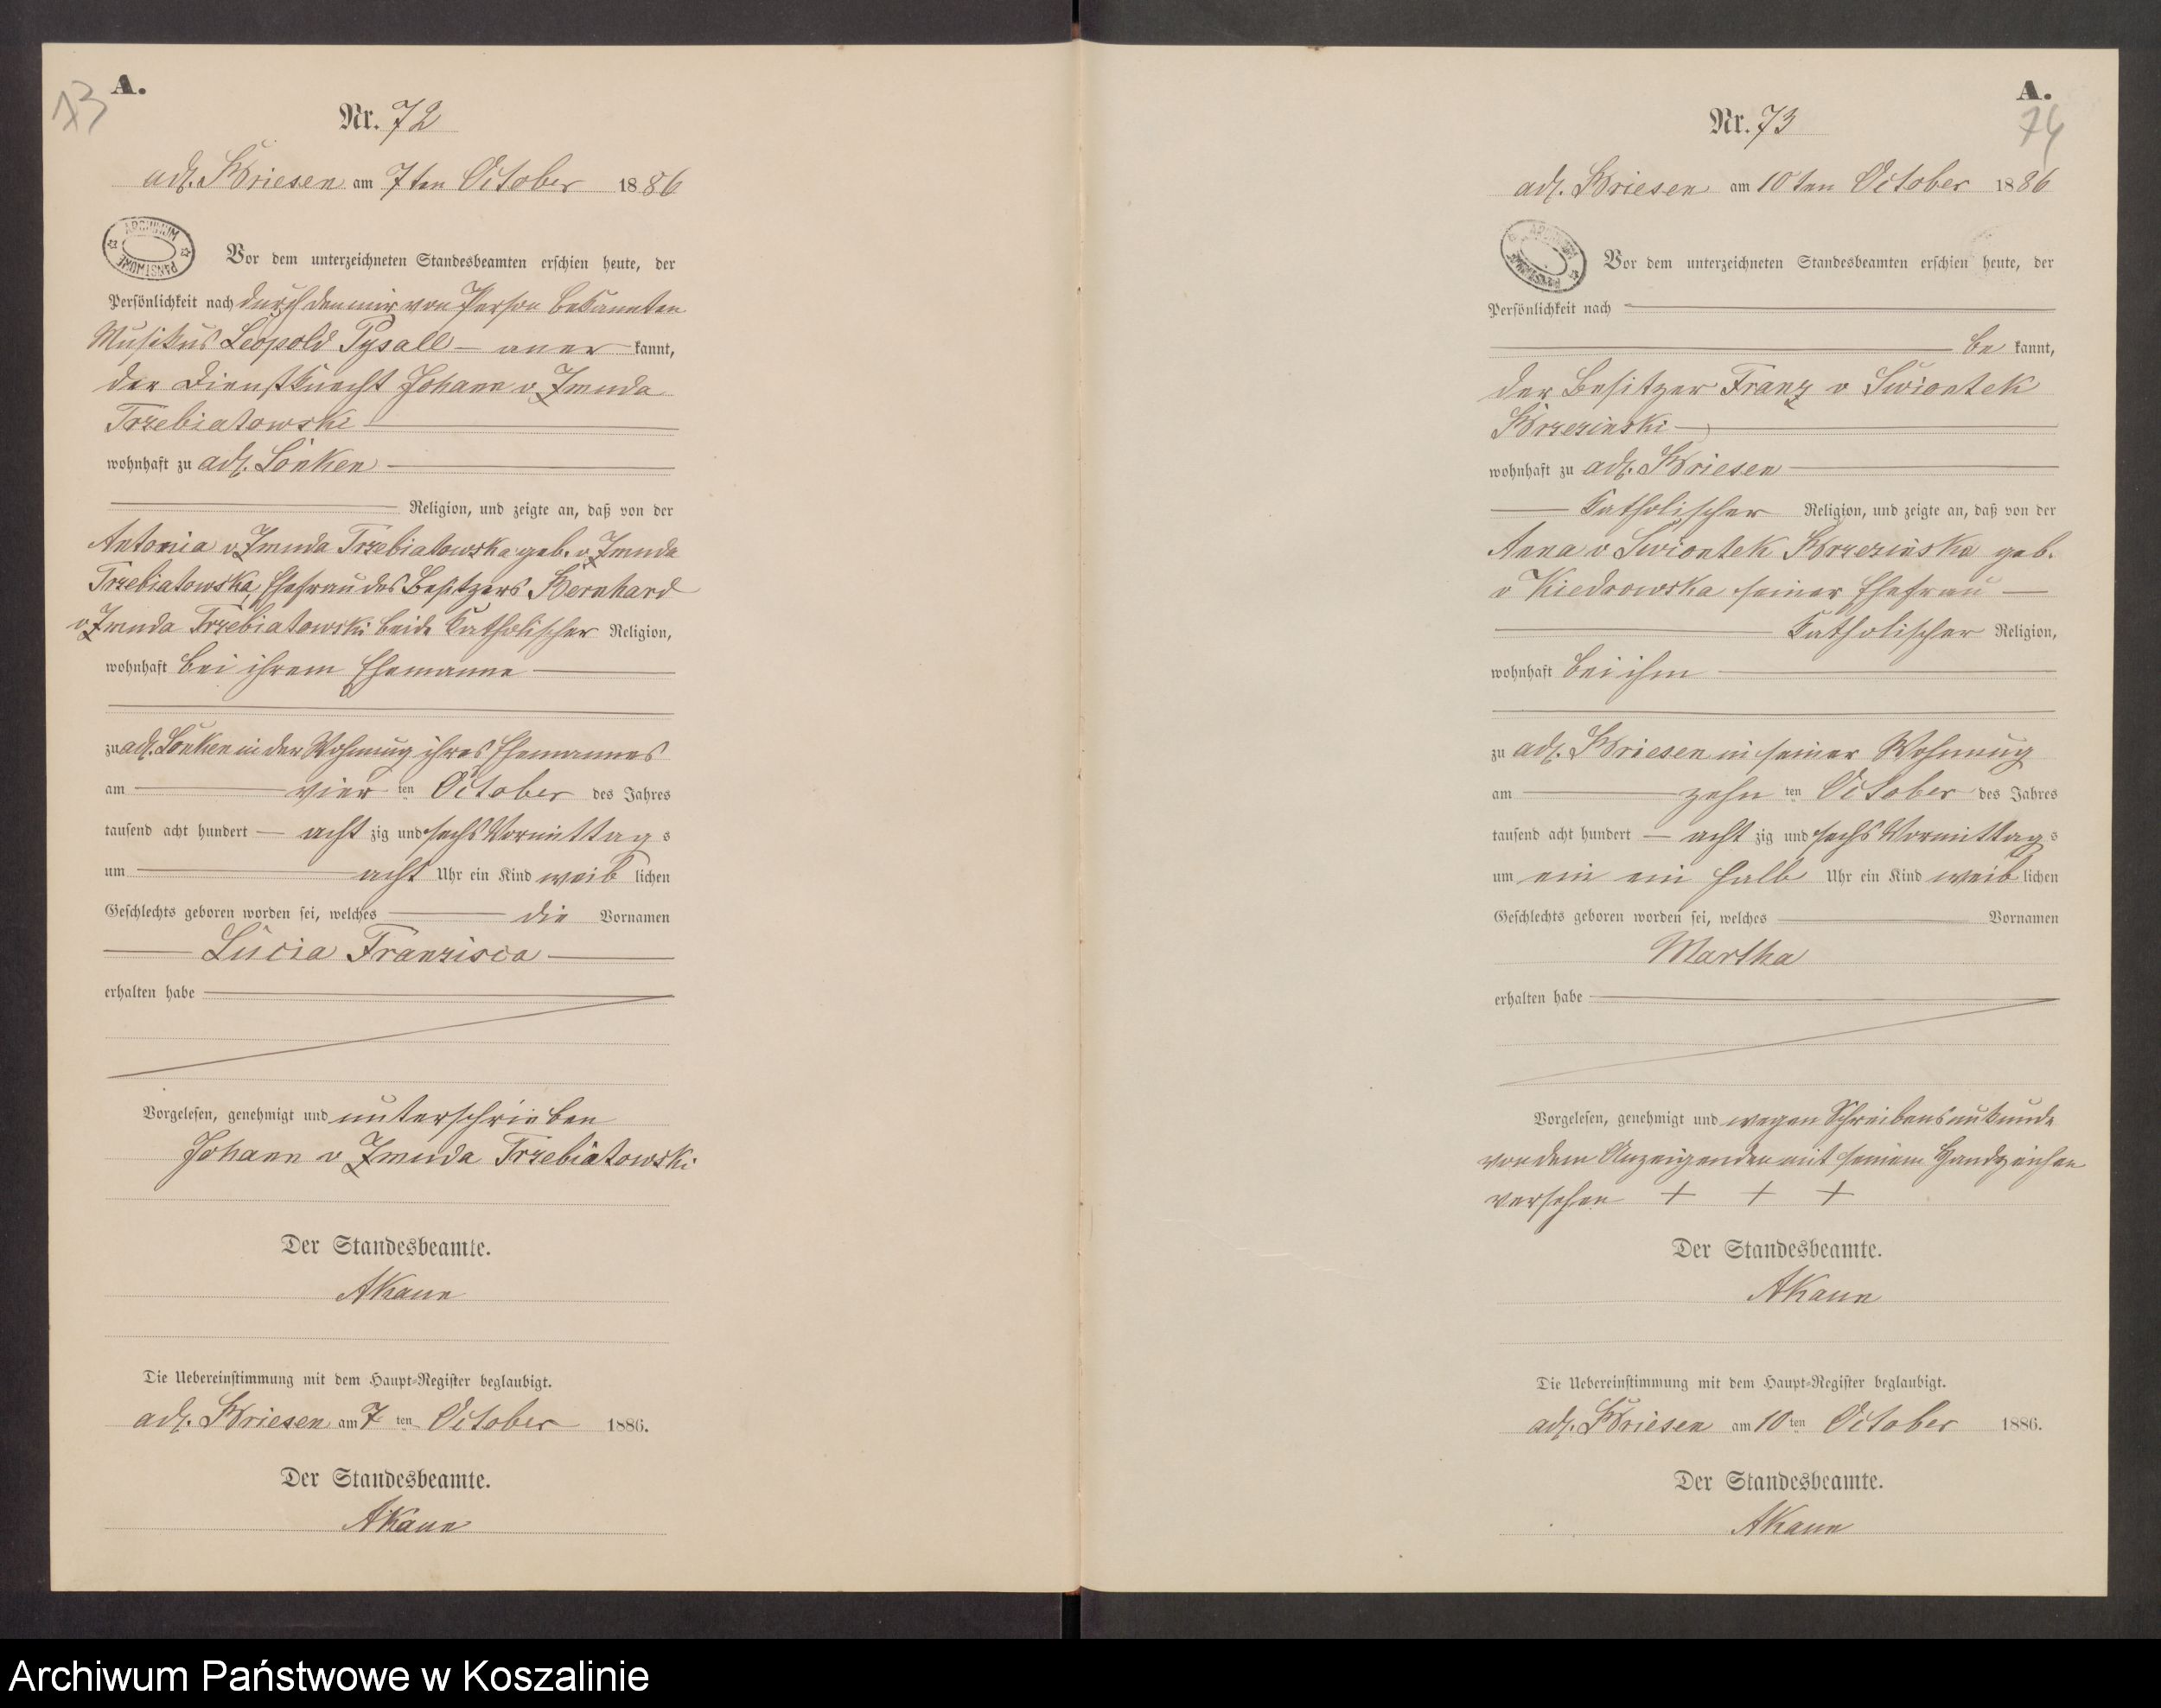 73
A.
Nr. 72
adl. Briesen am 7ten October 1886
ARCHIWUM PAŃSTWOWE
Vor dem unterzeichneten Standesbeamten erschien heute, der
Persönlichkeit nach durch den mir von Person bekannten
Musikus Leopold Pysall — aner kannt,
der Dienstknecht Johann v Zmuda
Trzebiatowski
wohnhaft zu adl. Lonken
Religion, und zeigte an, daß von der
Antonia v Zmuda Trzebiatowska geb. v Zmuda
Trzebiatowska, Ehefrau des Besitzers Bernhard
v Zmuda Trzebiatowski beide katholischer Religion,
wohnhaft bei ihrem Ehemanne
zu adl. Lonken in der Wohnung ihres Ehemannes
am vier ten October des Jahres
tausend acht hundert — acht zig und sechs Vormittag s
um acht Uhr ein Kind weib lichen
Geschlechts geboren worden sei, welches die Vornamen
Lucia Franzisca
erhalten habe
Vorgelesen, genehmigt und unterschrieben
Johann v Zmuda Trzebiatowski
Der Standesbeamte.
AKaun
Die Uebereinstimmung mit dem Haupt-Register beglaubigt.
adl. Briesen am 7 ten October 1886.
Der Standesbeamte.
AKaun
A.
74
Nr. 73
adl. Briesen am 10ten October 1886
ARCHIWUM PAŃSTWOWE
Vor dem unterzeichneten Standesbeamten erschien heute, der
Persönlichkeit nach
be kannt,
der Besitzer Franz v Swiontek
Brzezinski
wohnhaft zu adl. Briesen
katholischer Religion, und zeigte an, daß von der
Anna v Swiontek Brzezinska geb.
v Kiedrowska seiner Ehefrau —
katholischer Religion,
wohnhaft bei ihm
zu adl. Briesen in seiner Wohnung
am zehn ten October des Jahres
tausend acht hundert — acht zig und sechs Vormittag s
um ein ein halb Uhr ein Kind weib lichen
Geschlechts geboren worden sei, welches Vornamen
Martha
erhalten habe
Vorgelesen, genehmigt und wegen Schreibensunkunde
von dem Anzeigenden mit seinem Handzeichen
versehen + + +
Der Standesbeamte.
AKaun
Die Uebereinstimmung mit dem Haupt-Register beglaubigt.
adl. Briesen am 10 ten October 1886.
Der Standesbeamte.
AKaun
Archiwum Państwowe w Koszalinie